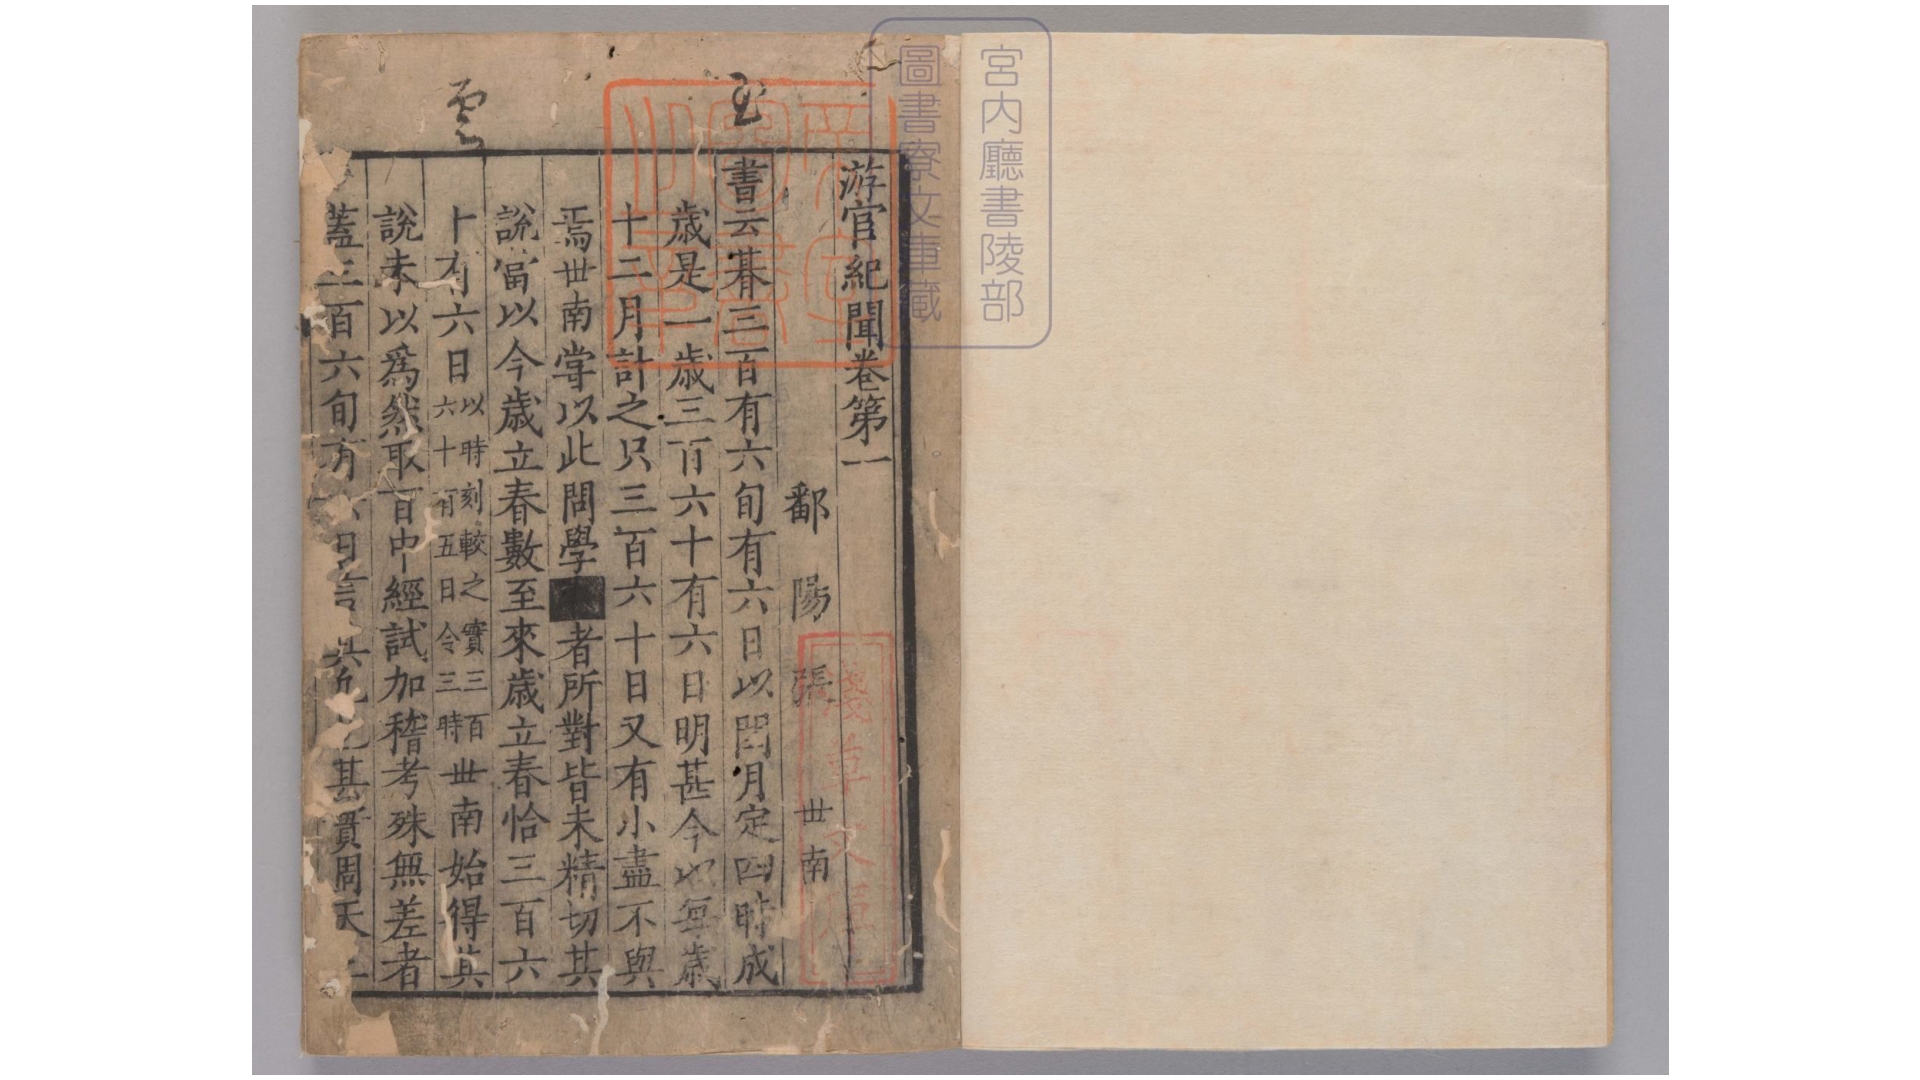 宮內廳書陵部
圖書寮文庫藏
游宦紀聞卷第一
鄱陽張世南
書云朞三百有六旬有六日以閏月定四時成
歲是一歲三百六十有六日明甚今以每歲
十二月計之只三百六十日又有小盡不與
焉丗南甞以此問學者所對皆未精切其
說當以今歲立春數至來歲立春恰三百六
十有六日以時刻較之實三百六十有五日令三時丗南始得其
說未以爲然取百中經試加稽考殊無差者
蓋三百六旬有日言其凡也甚實周天